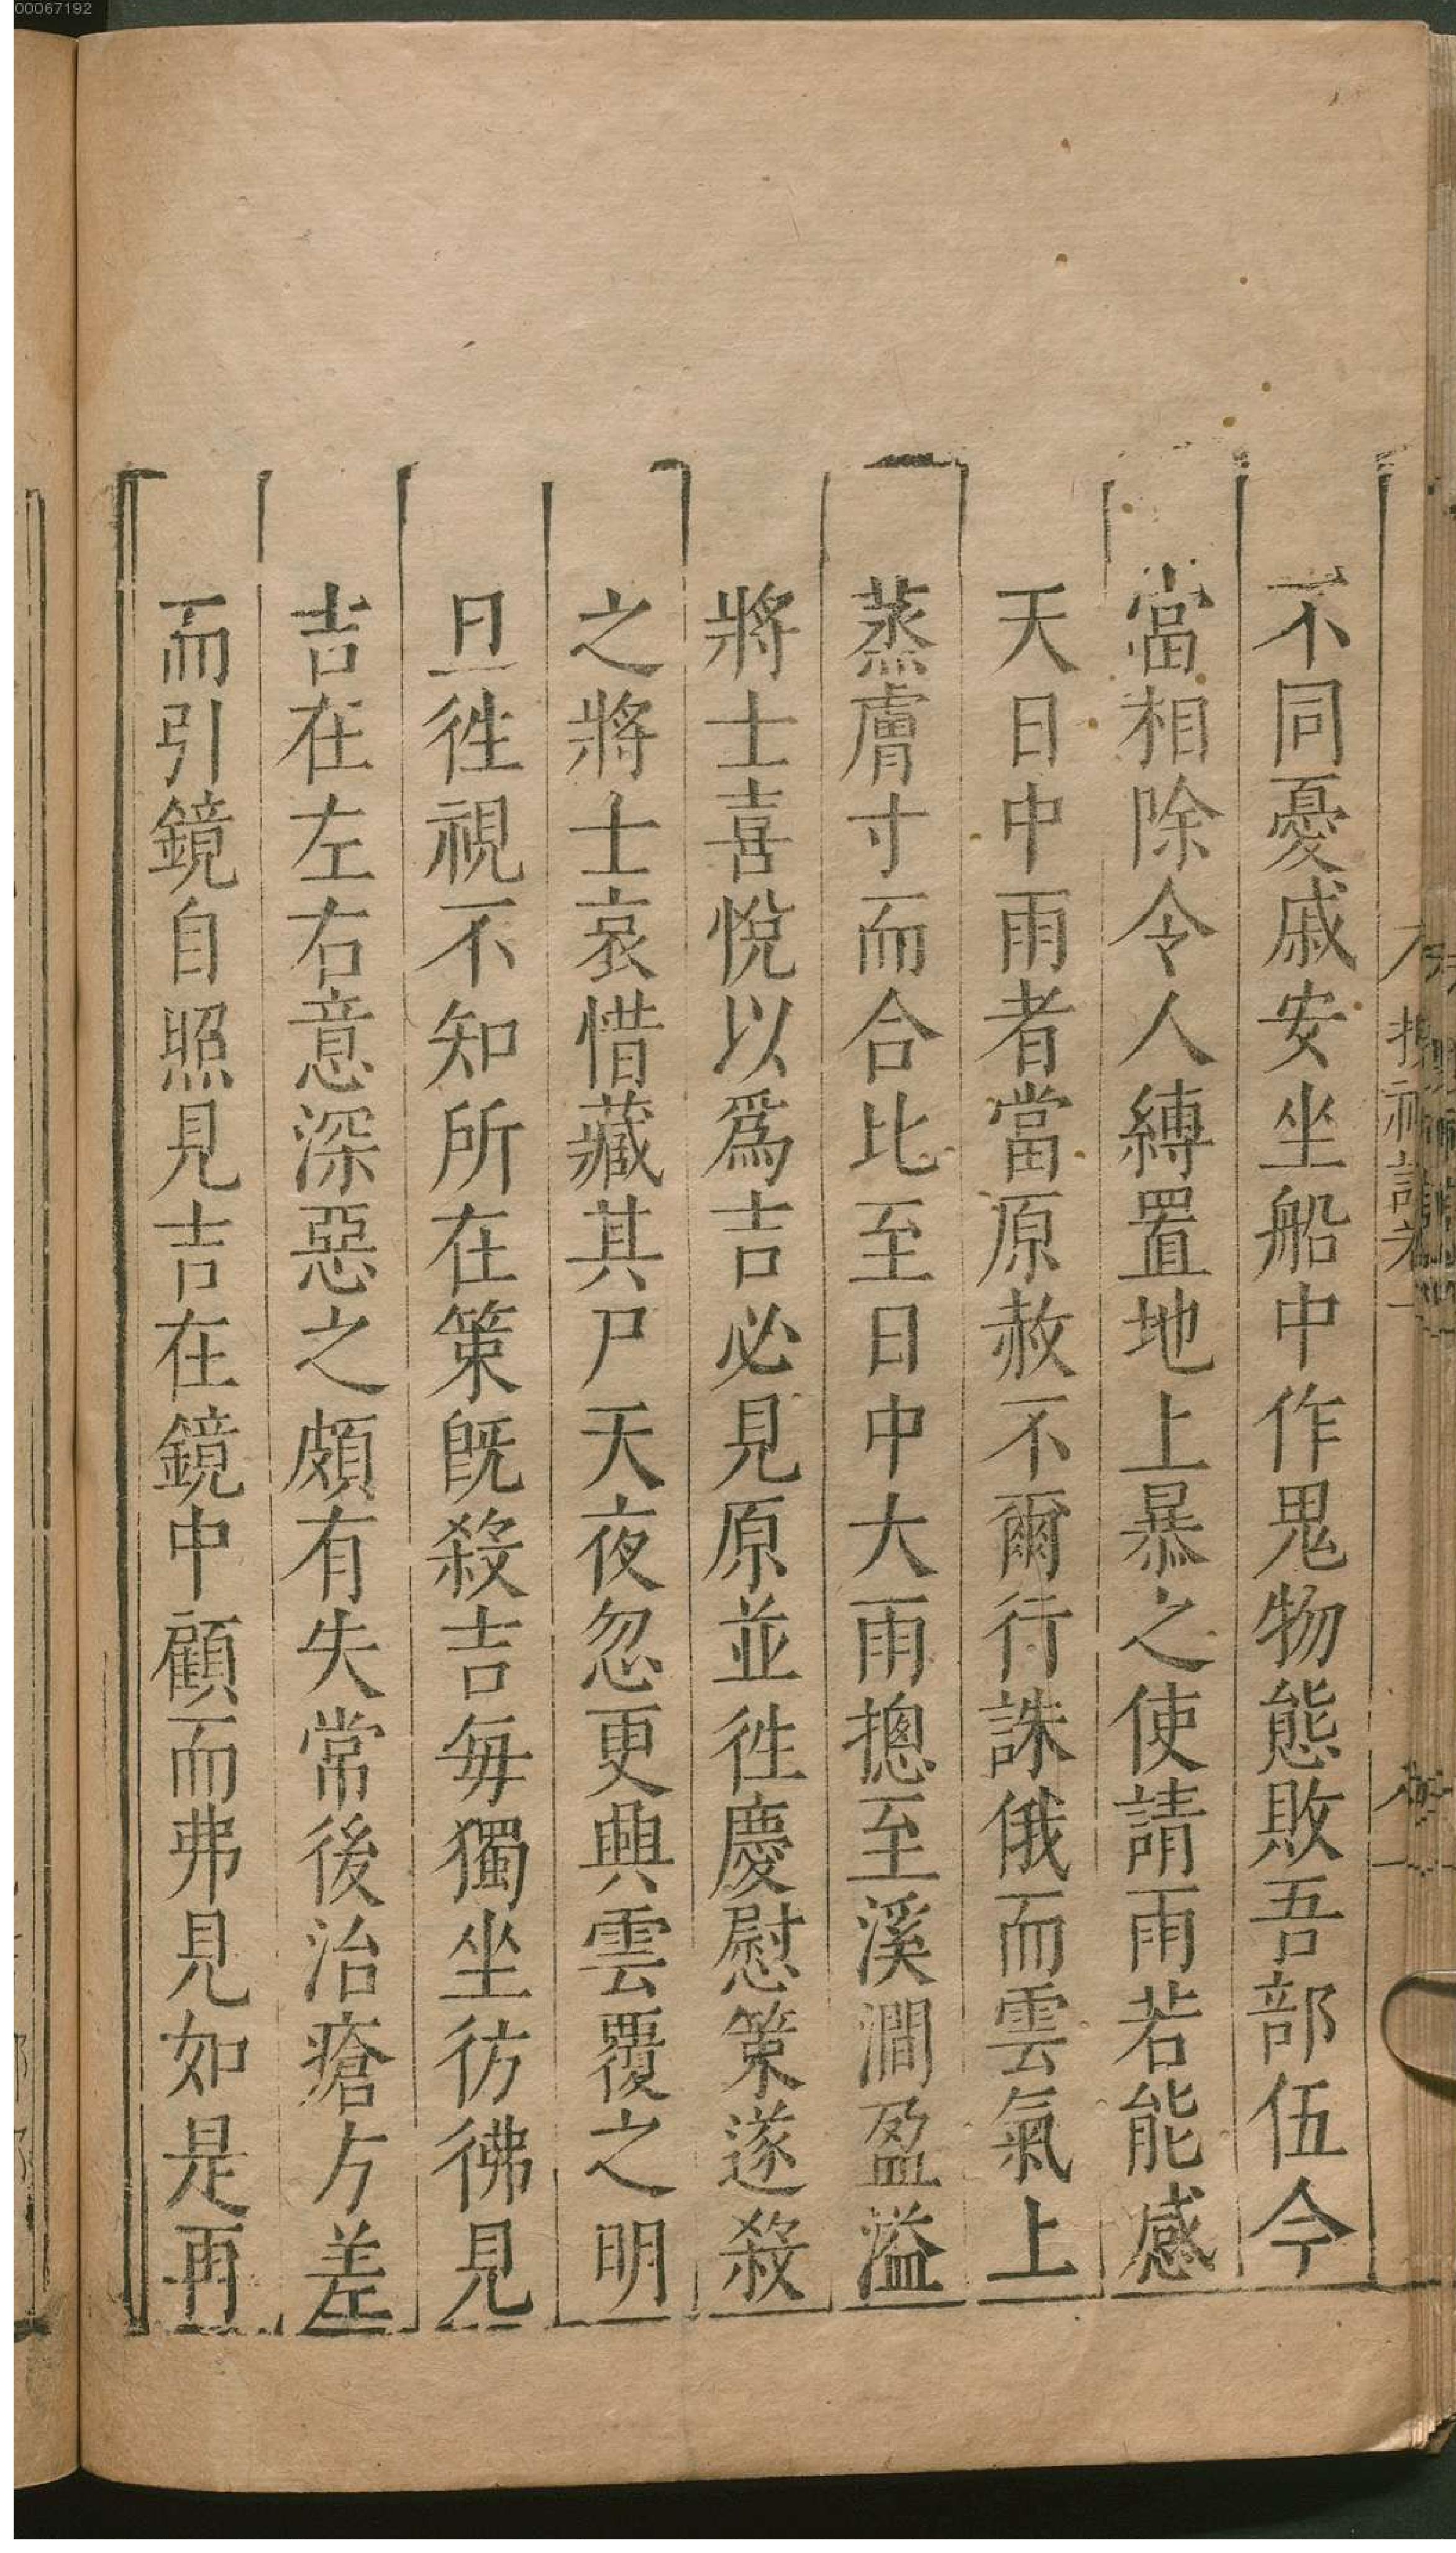 00067192
不同憂戚安坐船中作鬼物態敗吾部伍今
當相除令人縛置地上暴之使請雨若能感
天日中雨者當原赦不爾行誅俄而雲氣上
蒸膚寸而合比至日中大雨摠至溪澗盈溢
將士喜悅以爲吉必見原並徃慶慰策遂殺
之將士哀惜藏其尸天夜忽更興雲覆之明
旦徃視不知所在策旣殺吉每獨坐彷彿見
吉在左右意深惡之頗有失常後治瘡方差
而引鏡自照見吉在鏡中顧而弗見如是再